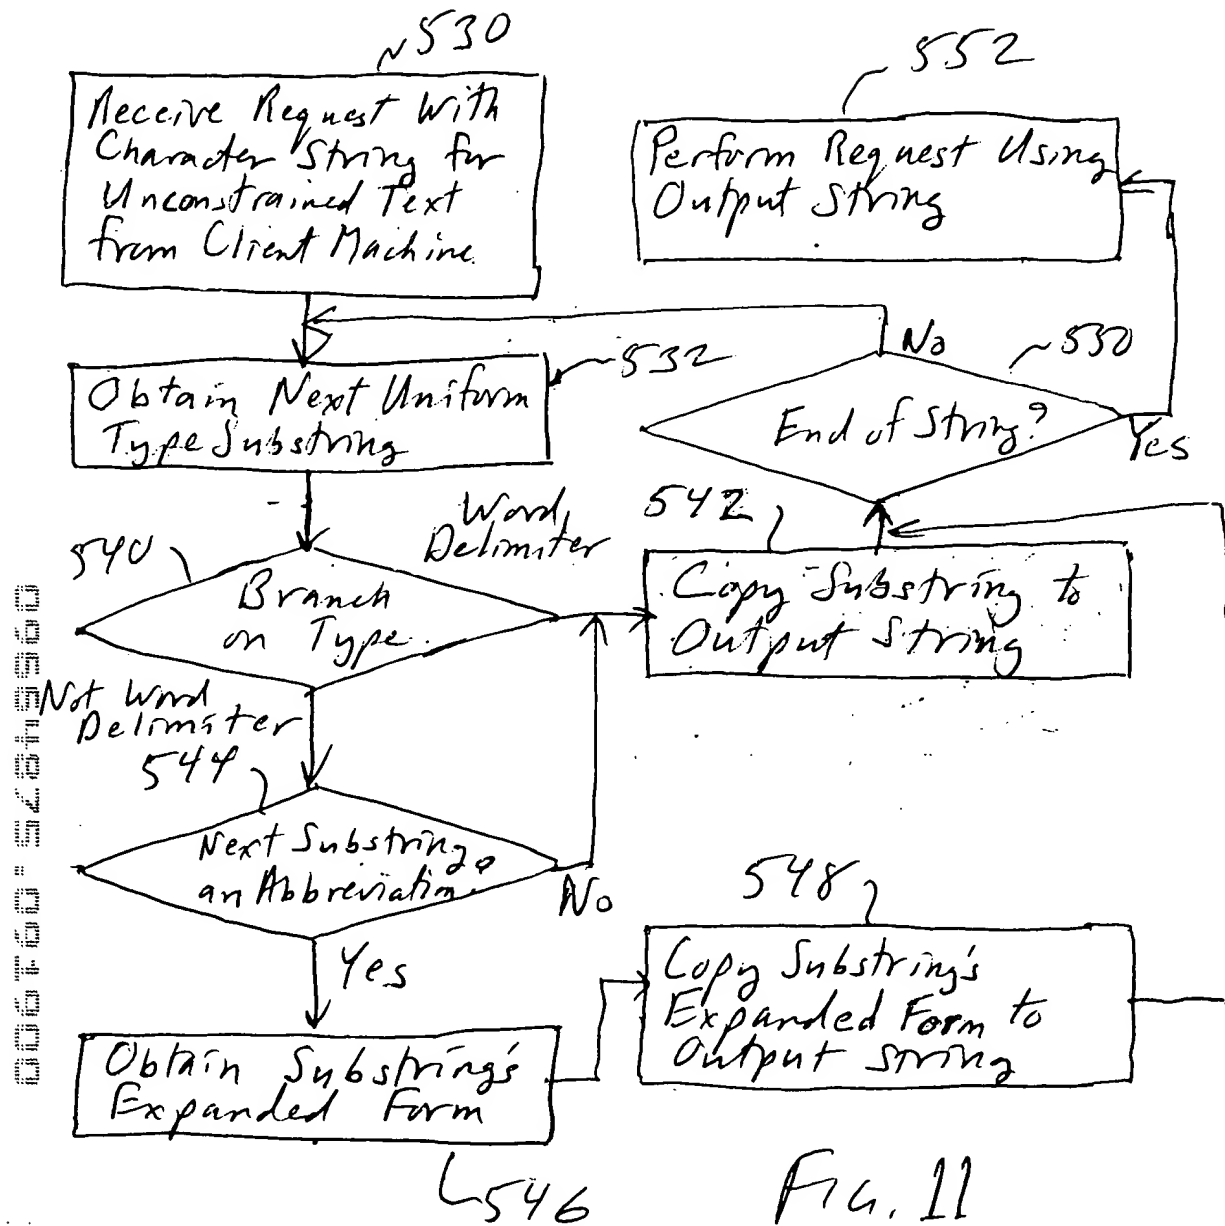 530
Receive Request With
Character String for
Unconstrained Text
from Client Machine
552
Perform Request Using
Output String
532
Obtain Next Uniform
Type Substring
No
550
End of String?
Yes
540
Branch
on Type
Word
Delimiter
542
Copy Substring to
Output String
Not Word
Delimiter
544
Next Substring
an Abbreviation?
No
Yes
546
Obtain Substring's
Expanded Form
548
Copy Substring's
Expanded Form to
Output String
FIG. 11